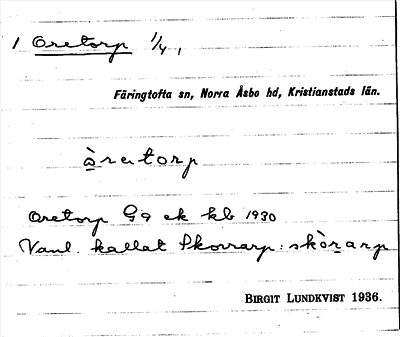 1 Oretorp 1/4,
Färingtofta sn, Norra Åsbo hd, Kristianstads län.
òretorp
Oretorp G9 ek kb 1930
Vanl. kallat Skorrarp: skòrarp
BIRGIT LUNDKVIST 1936.